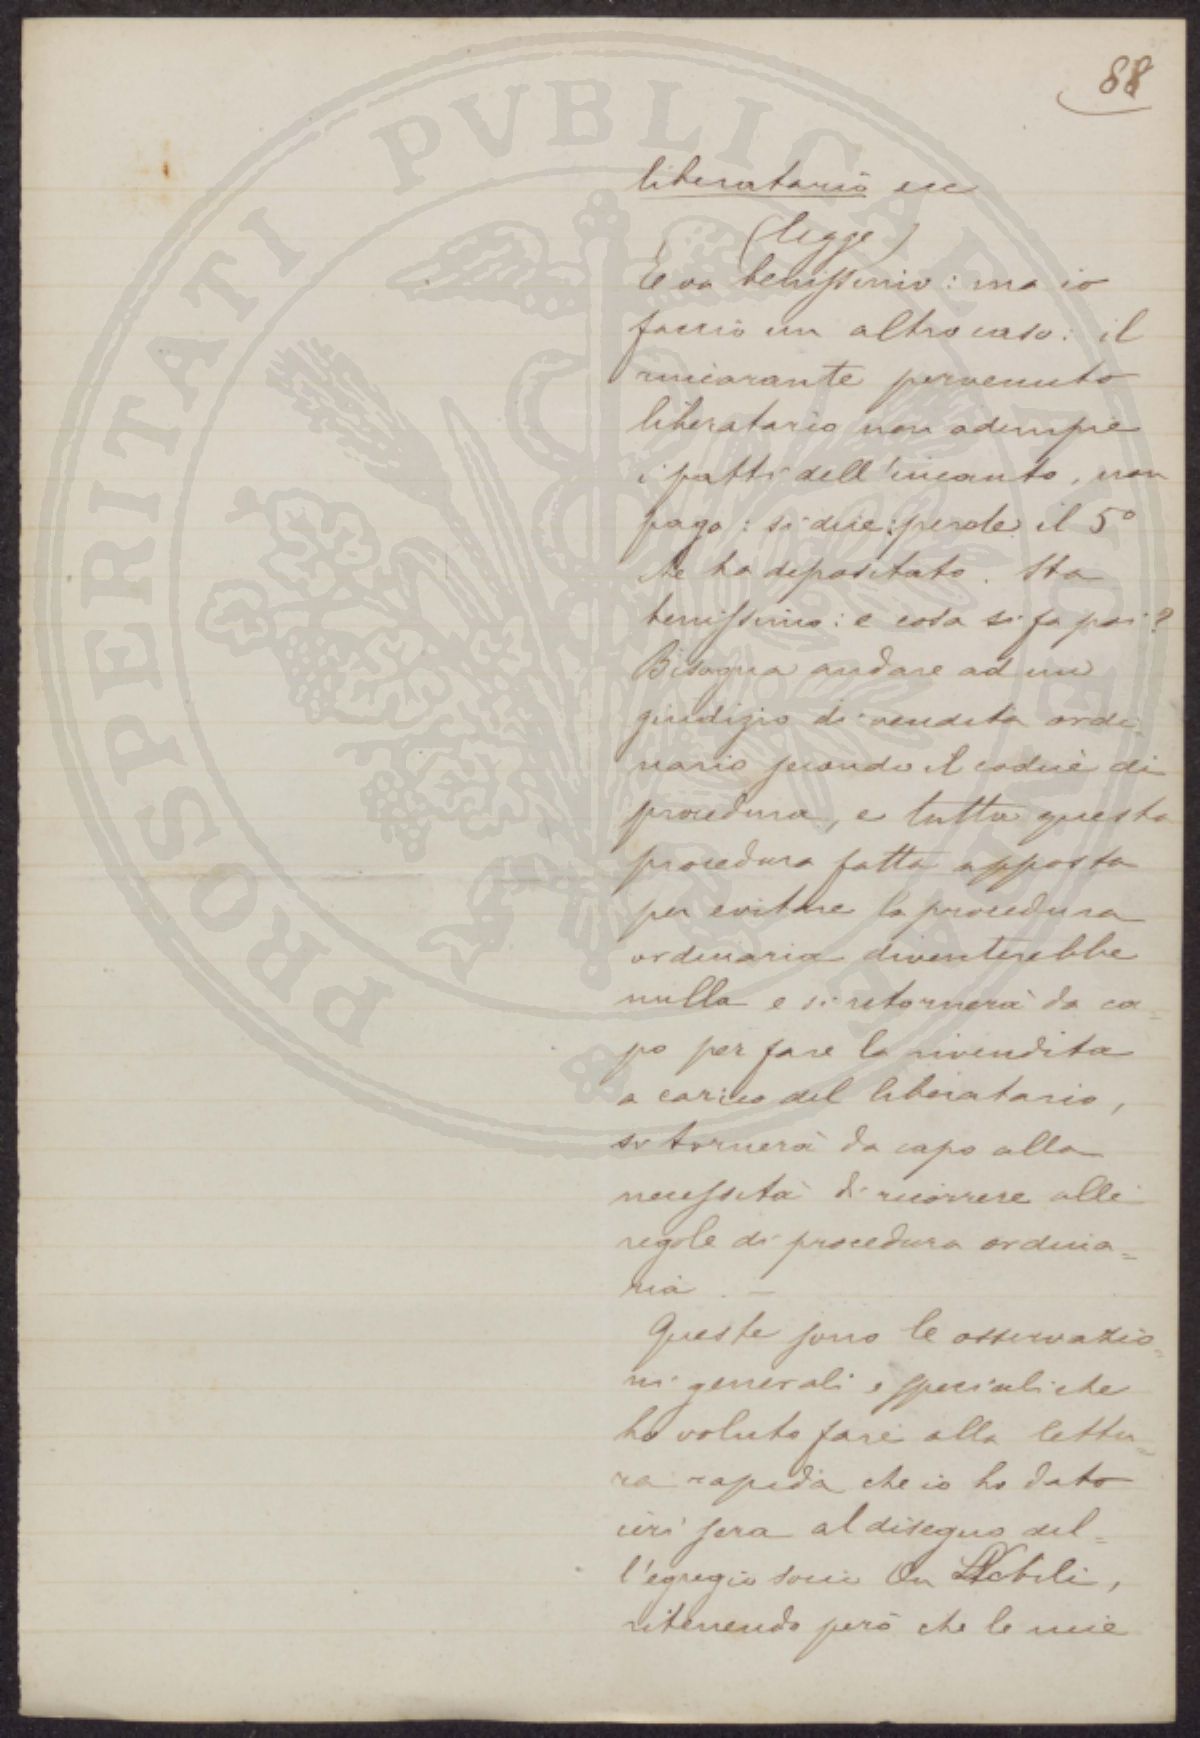 88
liberatario ecc
(legge)
E va benissimo: ma io
faccio un altro caso: il
rincarante pervenuto
liberatario non adempie
i patti dell'incanto, non
paga: si dice: perde il 5º
che ha depositato. Sta
benissimo: e cosa si fa poi?
Bisogna andare ad un
giudizio di vendita ordi-
nario secondo il codice di
procedura, e tutta questa
procedura fatta apposta
per evitare la procedura
ordinaria diventerebbe
nulla e si ritornerà da ca=
po per fare la rivendita
a carico del liberatario,
si tornerà da capo alla
necessità di ricorrere alle
regole di procedura ordina=
ria. –
Queste sono le osservazio=
ni generali e speciali che
ho voluto fare alla lettu=
ra rapida che io ho dato
ieri sera al disegno del=
l'egregio socio On Nobili,
ritenendo però che le mie
PROSPERITATI PVBLICAE